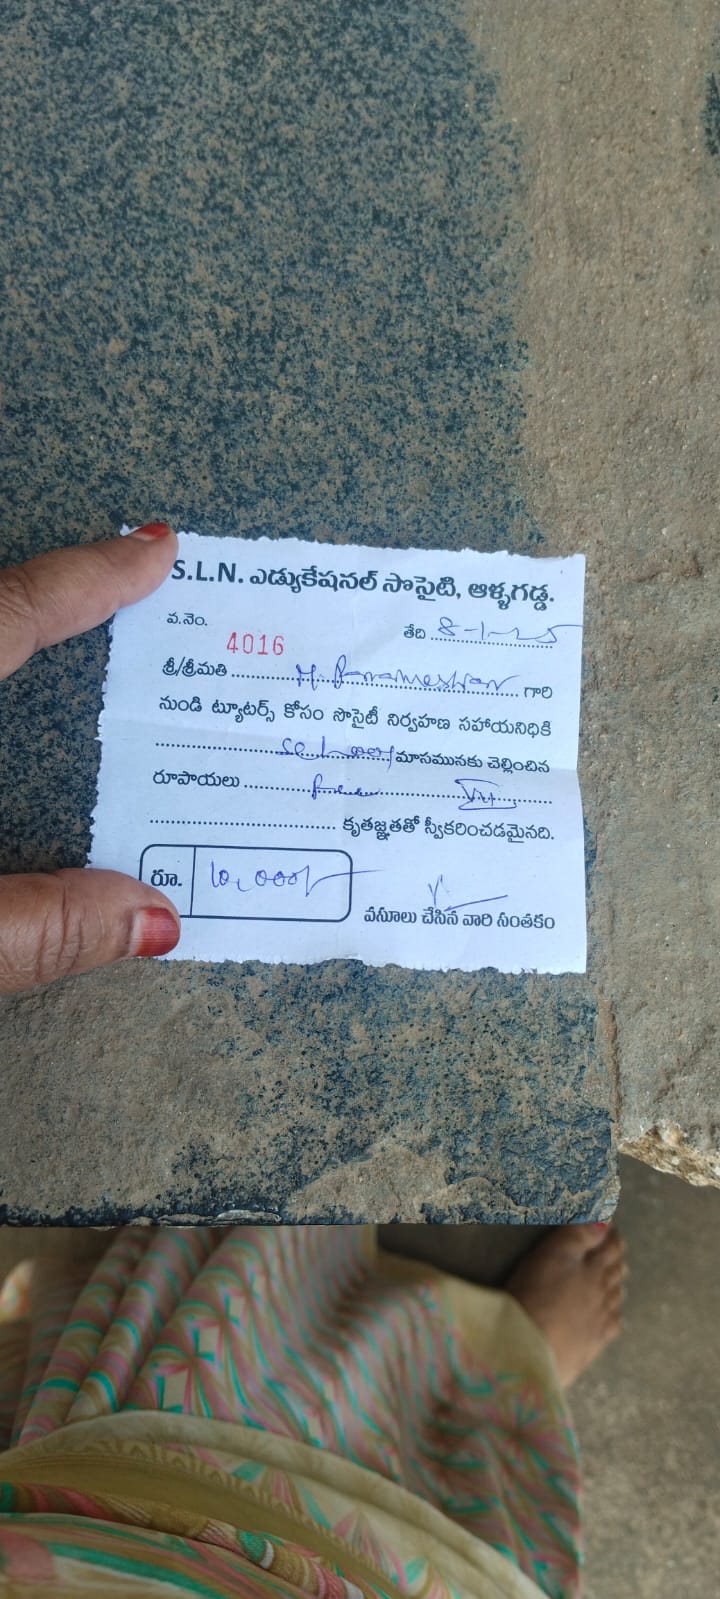 S.L.N. ఎడ్యుకేషనల్ సొసైటి, ఆళ్ళగడ్డ.
వ.నెం. 4016 తేది 8-1-25
శ్రీ/శ్రీమతి M. Parameshwar గారి
నుండి ట్యూటర్స్ కోసం సొసైటీ నిర్వహణ సహాయనిధికి
School మాసమునకు చెల్లించిన
రూపాయలు
కృతజ్ఞతతో స్వీకరించడమైనది.
రూ. 10,000/-
వసూలు చేసిన వారి సంతకం